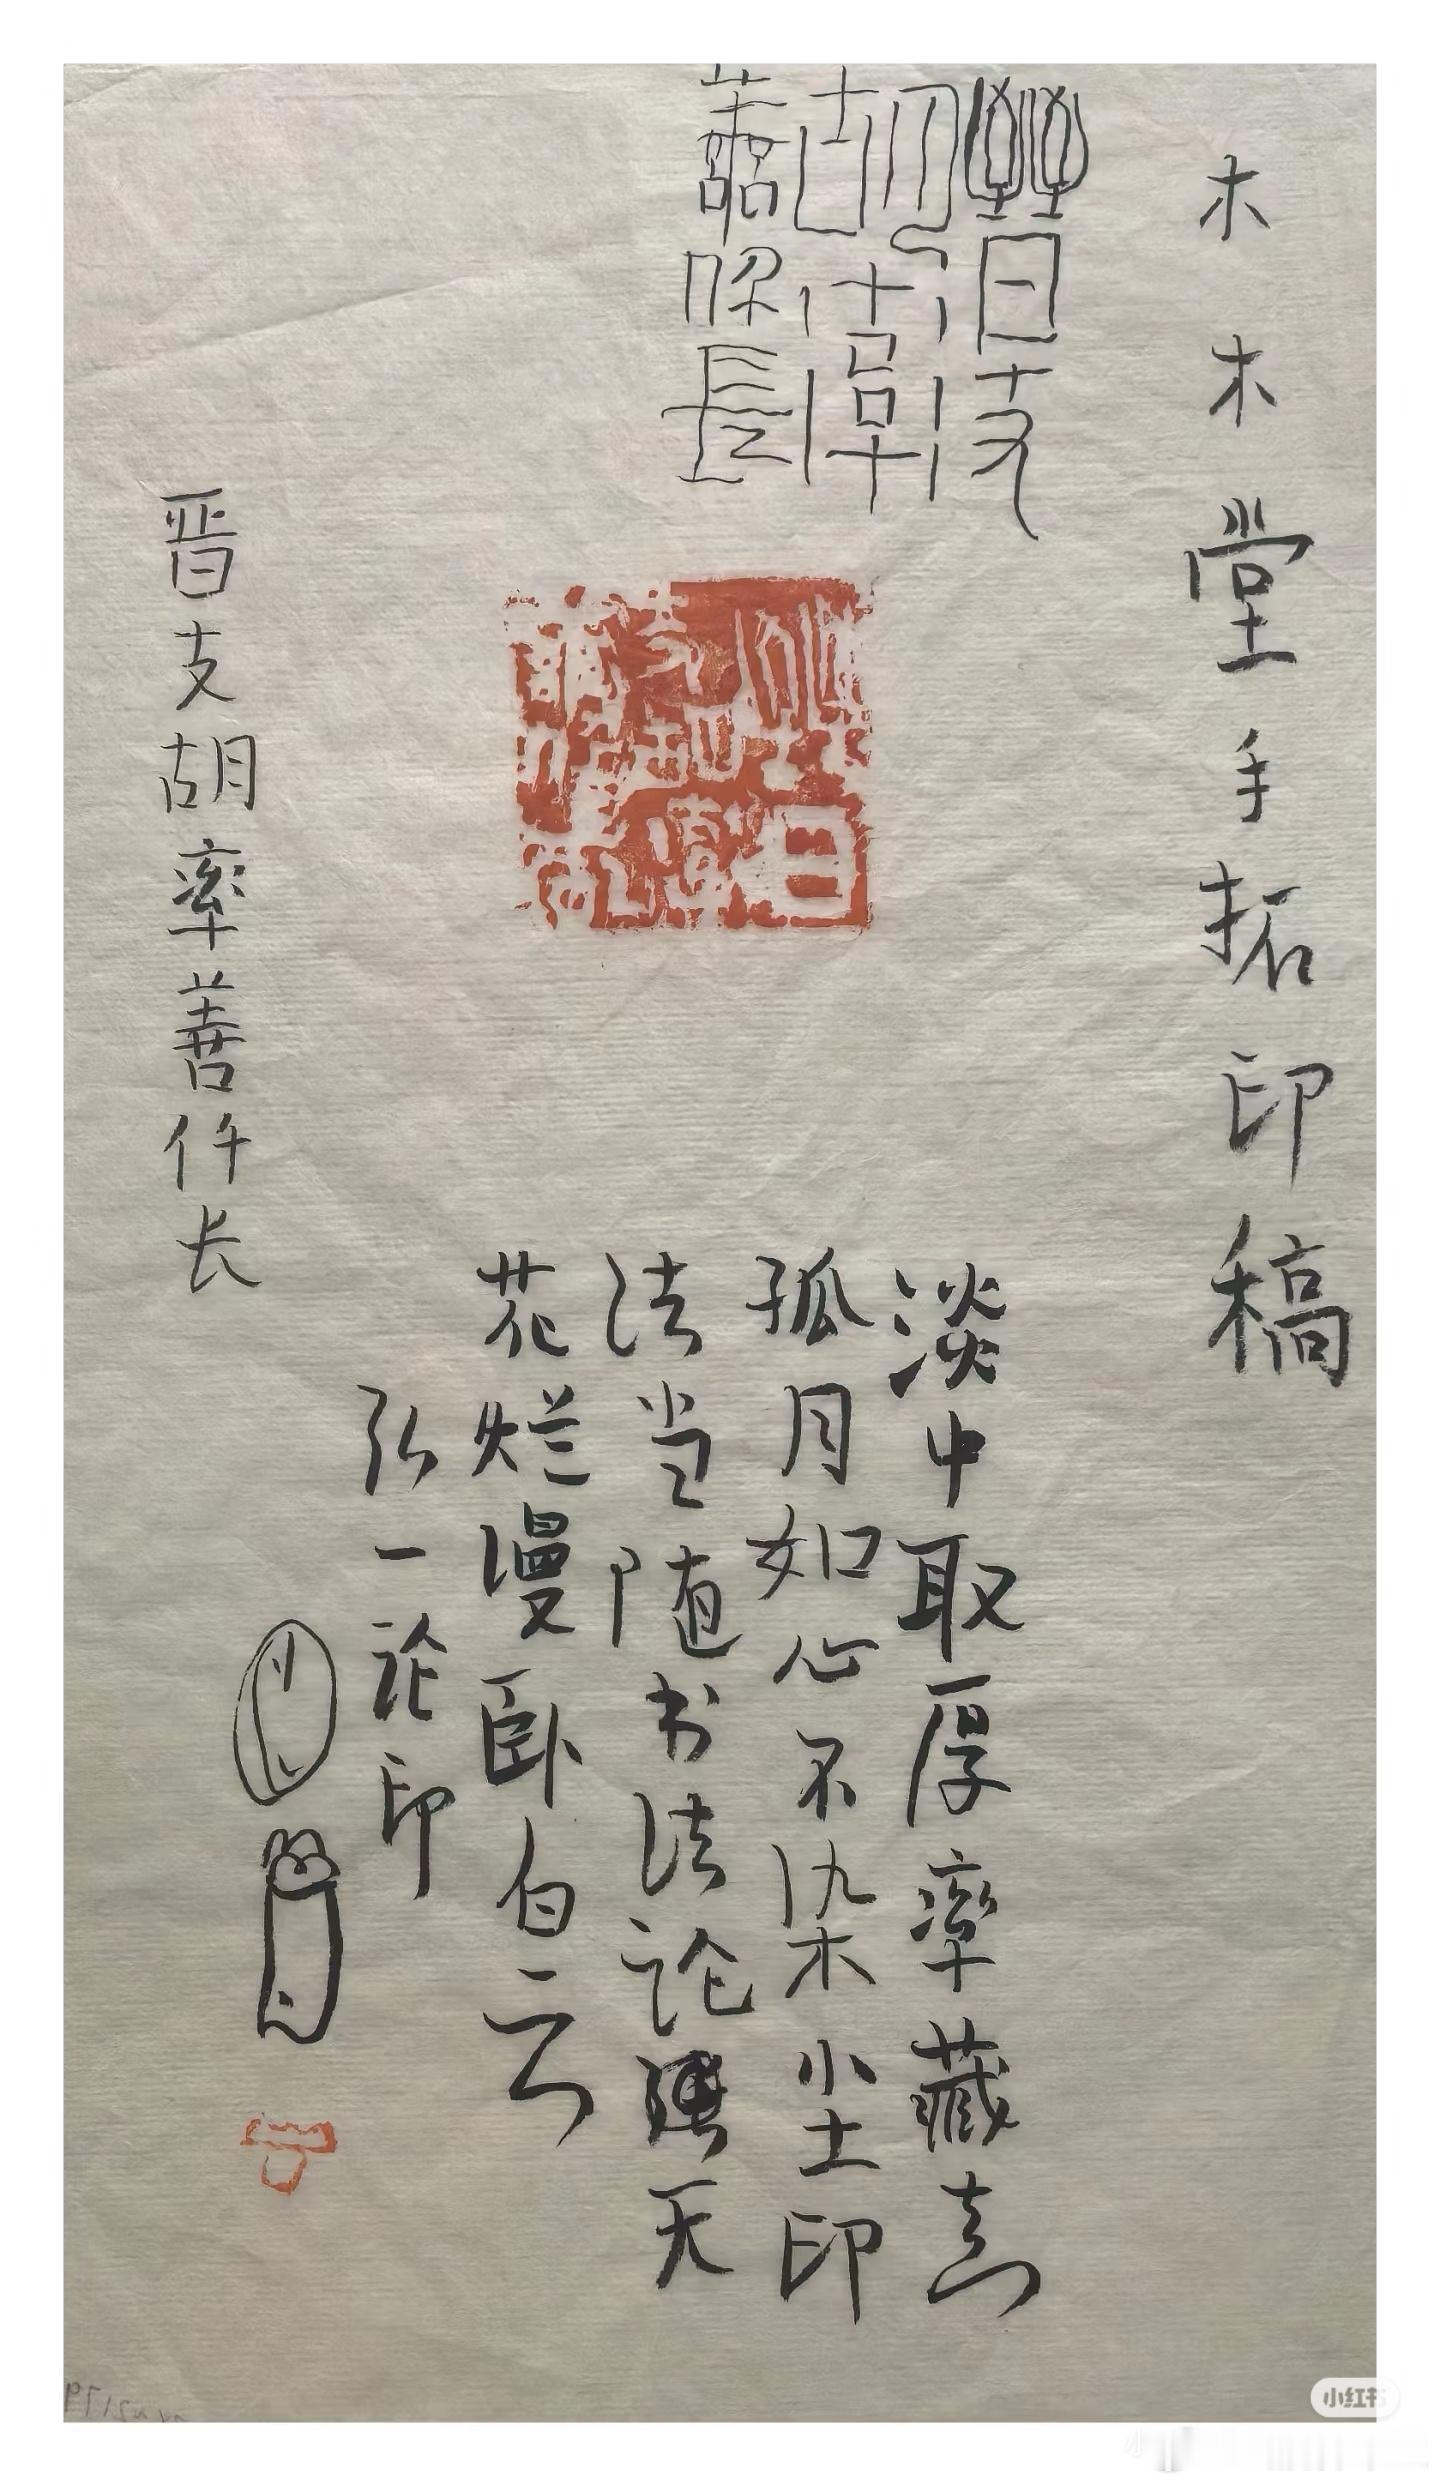 木木堂手拓印稿
晋支胡率善仟长
淡中取厚率藏真
孤月如心不染尘印
法当随书法论 天
花烂漫卧白云
弘一论印
小红书